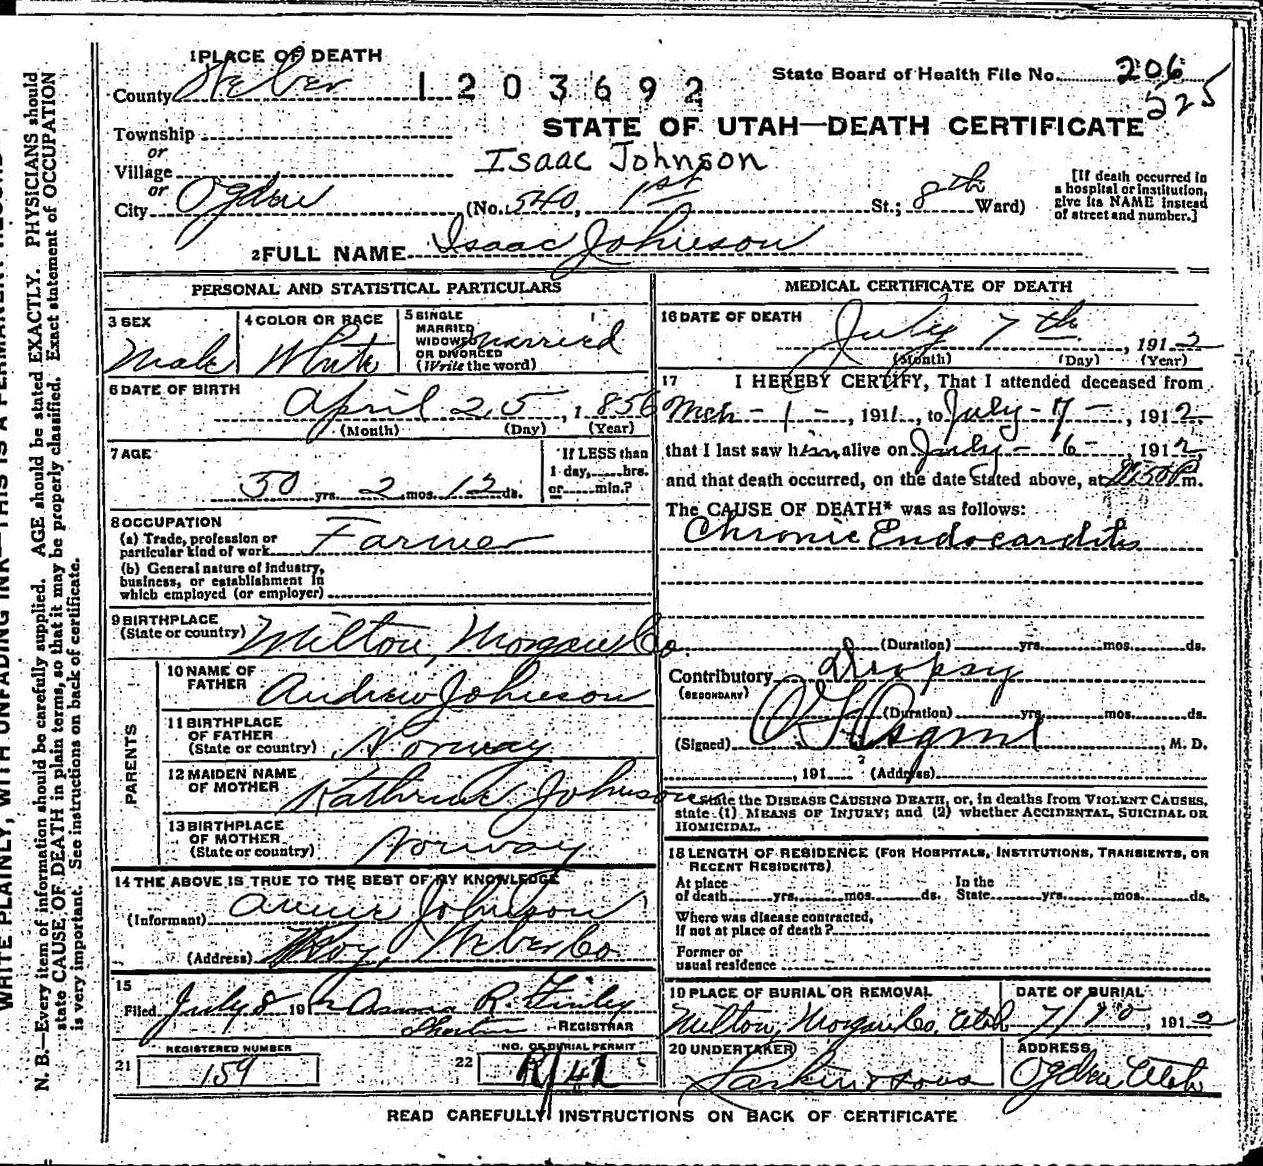 1 PLACE OF DEATH
County Weber 1203692
State Board of Health File No. 206
525
STATE OF UTAH—DEATH CERTIFICATE
Township
or
Village
Isaac Johnson
or
City Ogden (No. 540, 1st St.; 8th Ward)
[If death occurred in
a hospital or institution,
give its NAME instead
of street and number.]
2 FULL NAME Isaac Johnson
PERSONAL AND STATISTICAL PARTICULARS
3 SEX
Male
4 COLOR OR RACE
White
5 SINGLE
MARRIED
WIDOWED
OR DIVORCED
(Write the word)
Married
6 DATE OF BIRTH
April 25, 1856
(Month) (Day) (Year)
7 AGE
50 yrs. 2 mos. 12 ds.
If LESS than
1 day, hrs.
or min.?
8 OCCUPATION
(a) Trade, profession or
particular kind of work Farmer
(b) General nature of industry,
business, or establishment in
which employed (or employer)
9 BIRTHPLACE
(State or country) Milton, Morgan Co.
PARENTS
10 NAME OF
FATHER Andrew Johnson
11 BIRTHPLACE
OF FATHER
(State or country) Norway
12 MAIDEN NAME
OF MOTHER Kathrine Johnson
13 BIRTHPLACE
OF MOTHER
(State or country) Norway
14 THE ABOVE IS TRUE TO THE BEST OF MY KNOWLEDGE
(Informant) Johnson
(Address) Roy, Weber Co
15
Filed July 8 191 2 R. Finley
REGISTRAR
REGISTERED NUMBER
21 159
NO. OF BURIAL PERMIT
22 R/41
MEDICAL CERTIFICATE OF DEATH
16 DATE OF DEATH
July 7th, 1912
(Month) (Day) (Year)
17 I HEREBY CERTIFY, That I attended deceased from
Mch - 1 -, 1911, to July - 7 -, 1912
that I last saw him alive on July - 6 - 1912,
and that death occurred, on the date stated above, at m.
The CAUSE OF DEATH* was as follows:
Chronic Endocarditis
(Duration) yrs. mos. ds.
Contributory Dropsy
(SECONDARY)
(Duration) yrs. mos. ds.
(Signed) Osgood, M. D.
, 191 (Address)
*State the DISEASE CAUSING DEATH, or, in deaths from VIOLENT CAUSES,
state (1) MEANS OF INJURY; and (2) whether ACCIDENTAL, SUICIDAL OR
HOMICIDAL.
18 LENGTH OF RESIDENCE (FOR HOSPITALS, INSTITUTIONS, TRANSIENTS, OR
RECENT RESIDENTS)
At place
of death yrs. mos. ds.
In the
State yrs. mos. ds.
Where was disease contracted,
if not at place of death?
Former or
usual residence
19 PLACE OF BURIAL OR REMOVAL
Milton, Morgan Co, Utah
DATE OF BURIAL
7/10, 1912
20 UNDERTAKER
Larkin & Sons
ADDRESS
Ogden Utah
READ CAREFULLY INSTRUCTIONS ON BACK OF CERTIFICATE
N. B.—Every item of information should be carefully supplied. AGE should be stated EXACTLY. PHYSICIANS should
state CAUSE OF DEATH in plain terms, so that it may be properly classified. Exact statement of OCCUPATION
is very important. See instructions on back of certificate.
WRITE PLAINLY, WITH UNFADING INK—THIS IS A PERMANENT RECORD